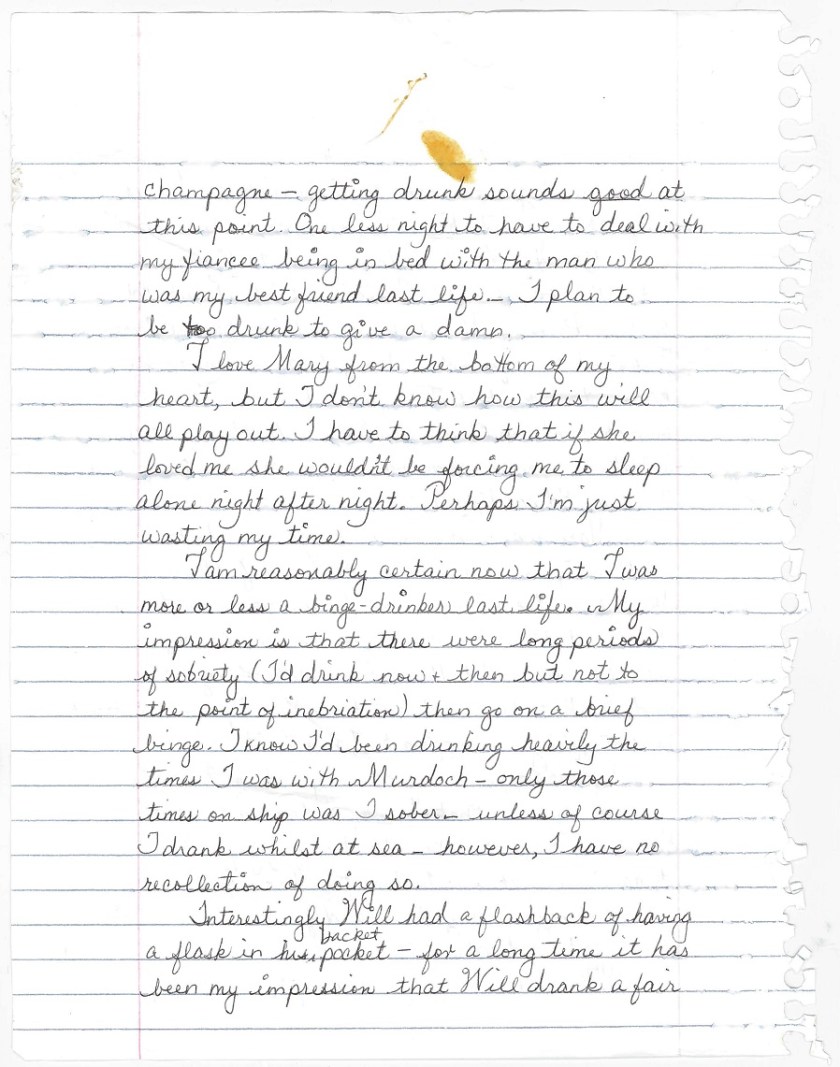 champagne – getting drunk sounds good at
this point. One less night to have to deal with
my fiancee being in bed with the man who
was my best friend last life – I plan to
be too drunk to give a damn.
I love Mary from the bottom of my
heart, but I don't know how this will
all play out. I have to think that if she
loved me she wouldn't be forcing me to sleep
alone night after night. Perhaps I'm just
wasting my time.
I am reasonably certain now that I was
more or less a binge-drinker last life. My
impression is that there were long periods
of sobriety (I'd drink now + then but not to
the point of inebriation) then go on a brief
binge. I know I'd been drinking heavily the
times I was with Murdoch – only those
times on ship was I sober – unless of course
I drank whilst at sea – however, I have no
recollection of doing so.
Interestingly Will had a flashback of having
a flask in his jacket pocket – for a long time it has
been my impression that Will drank a fair